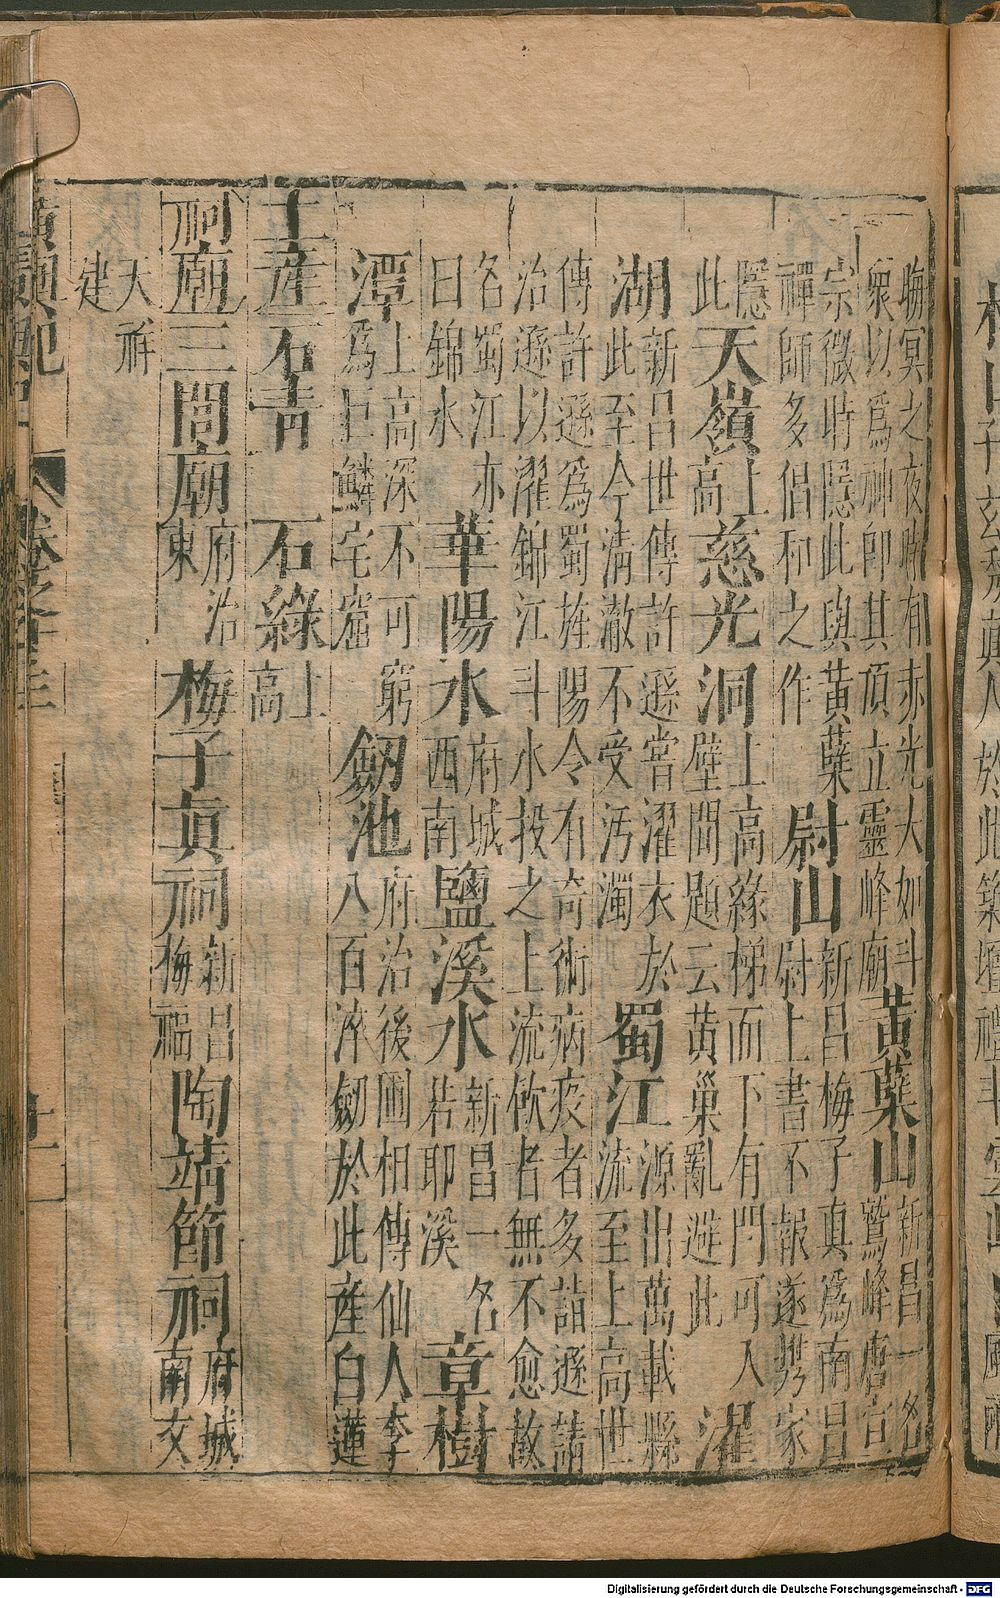 晦冥之夜嘗有赤光大如斗衆以爲神即其頂立靈峰廟黃蘗山新昌一名鷲峰唐宣
宗微時隱此與黃蘗禪師多倡和之作尉山新昌梅子真爲南昌尉上書不報遂携家
隱此天嶺上高慈光洞上高緣梯而下有門可入壁間題云黃巢亂避此濯
湖新昌世傳許遜嘗濯衣於此至今清澈不受汚濁蜀江源出萬載縣流至上高世
傳許遜爲蜀旌陽令有奇術病疫者多詣遜請治遜以濯錦江斗水投之上流飲者無不愈故
名蜀江亦曰錦水華陽水府城西南鹽溪水新昌一名若耶溪章樹
潭上高深不可窮爲巨鱗宅窟劒池府治後圃相傳仙人李八百淬劒於此産白蓮
土産石青石綠上高
祠廟三閭廟府治東梅子眞祠新昌梅福陶靖節祠府城南文
天祥建
Digitalisierung gefördert durch die Deutsche Forschungsgemeinschaft - DFG